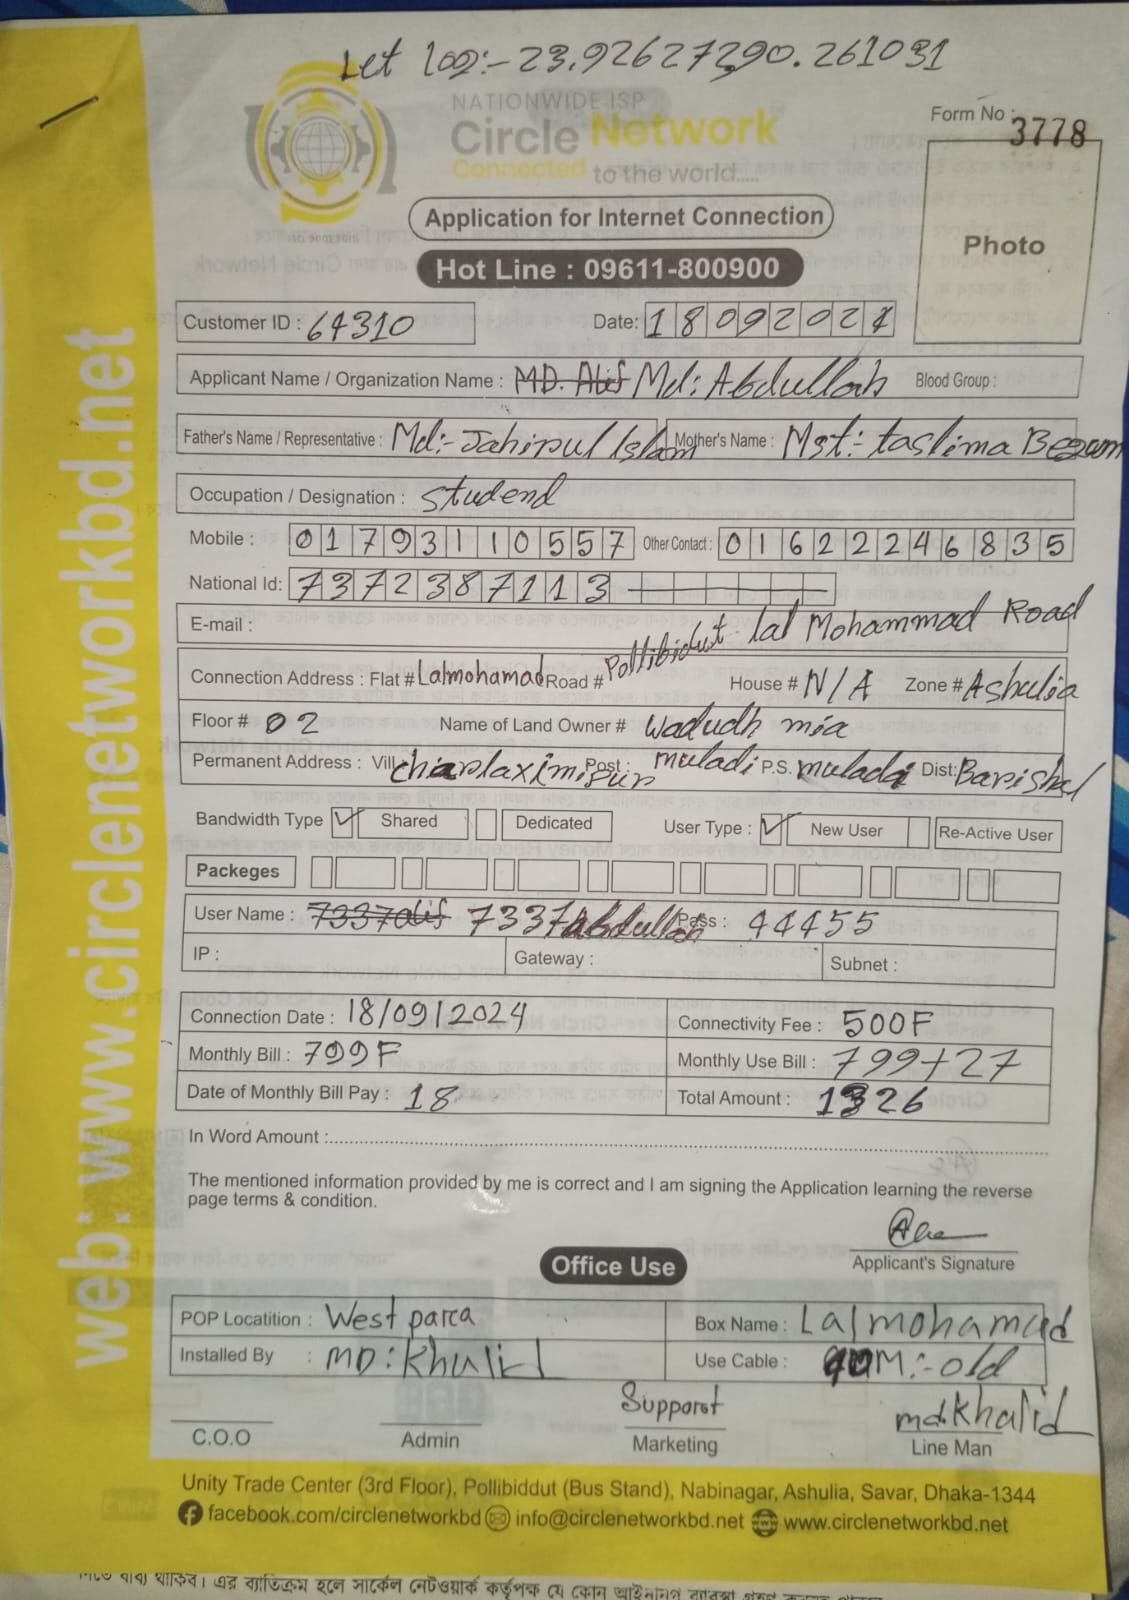 Let log:- 23.926272,90.261031
NATIONWIDE ISP
Circle Network
Connected to the world.....
Form No : 3778
Photo
Application for Internet Connection
Hot Line : 09611-800900
Customer ID : 64310 Date: 18092024
Applicant Name / Organization Name : MD. Atif Md: Abdullah Blood Group :
Father's Name / Representative : Md:- Jahirul Islam Mother's Name : Mst:- taslima Begum
Occupation / Designation : Studend
Mobile : 01793110557 Other Contact : 01622246835
National Id: 7372387113
E-mail :
Connection Address : Flat # Lalmohamad Road # Pollibidut lal Mohammad Road House # N/A Zone # Ashulia
Floor # 02 Name of Land Owner # Wadudh mia
Permanent Address : Vill: charlaximipur Post : muladi P.S. muladi Dist: Barishal
Bandwidth Type Shared Dedicated User Type : New User Re-Active User
Packeges
User Name : 7337atif 7337abdullah Pass : 44455
IP : Gateway : Subnet :
Connection Date : 18/09/2024 Connectivity Fee : 500F
Monthly Bill : 799F Monthly Use Bill : 799+27
Date of Monthly Bill Pay : 18 Total Amount : 1326
In Word Amount :
The mentioned information provided by me is correct and I am signing the Application learning the reverse
page terms & condition.
Applicant's Signature
Office Use
POP Locatition : West parca Box Name : Lalmohamud
Installed By : MD: Khalid Use Cable : M:-old
Supporot md:Khalid
C.O.O Admin Marketing Line Man
Unity Trade Center (3rd Floor), Pollibiddut (Bus Stand), Nabinagar, Ashulia, Savar, Dhaka-1344
facebook.com/circlenetworkbd info@circlenetworkbd.net www.circlenetworkbd.net
web: www.circlenetworkbd.net
থাকিব। এর ব্যতিক্রম হলে সার্কেল নেটওয়ার্ক কর্তৃপক্ষ যে কোন